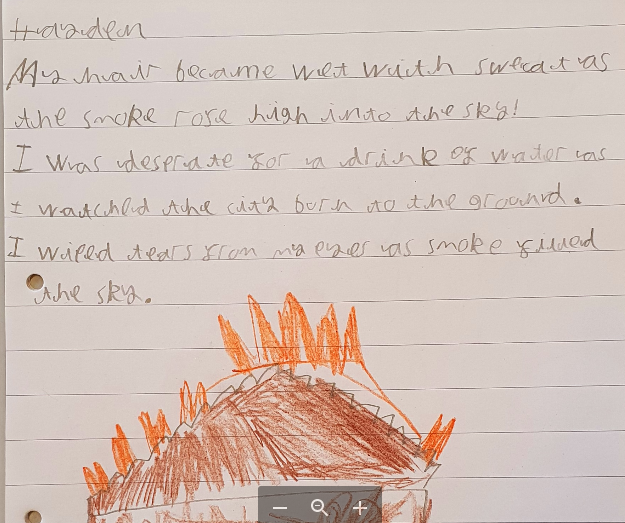 Hayden
My hair became wet with sweat as
the smoke rose high into the sky!
I was desprate for a drink of water as
I watched the city burn to the ground.
I wiped tears from my eyes as smoke filled
the sky.